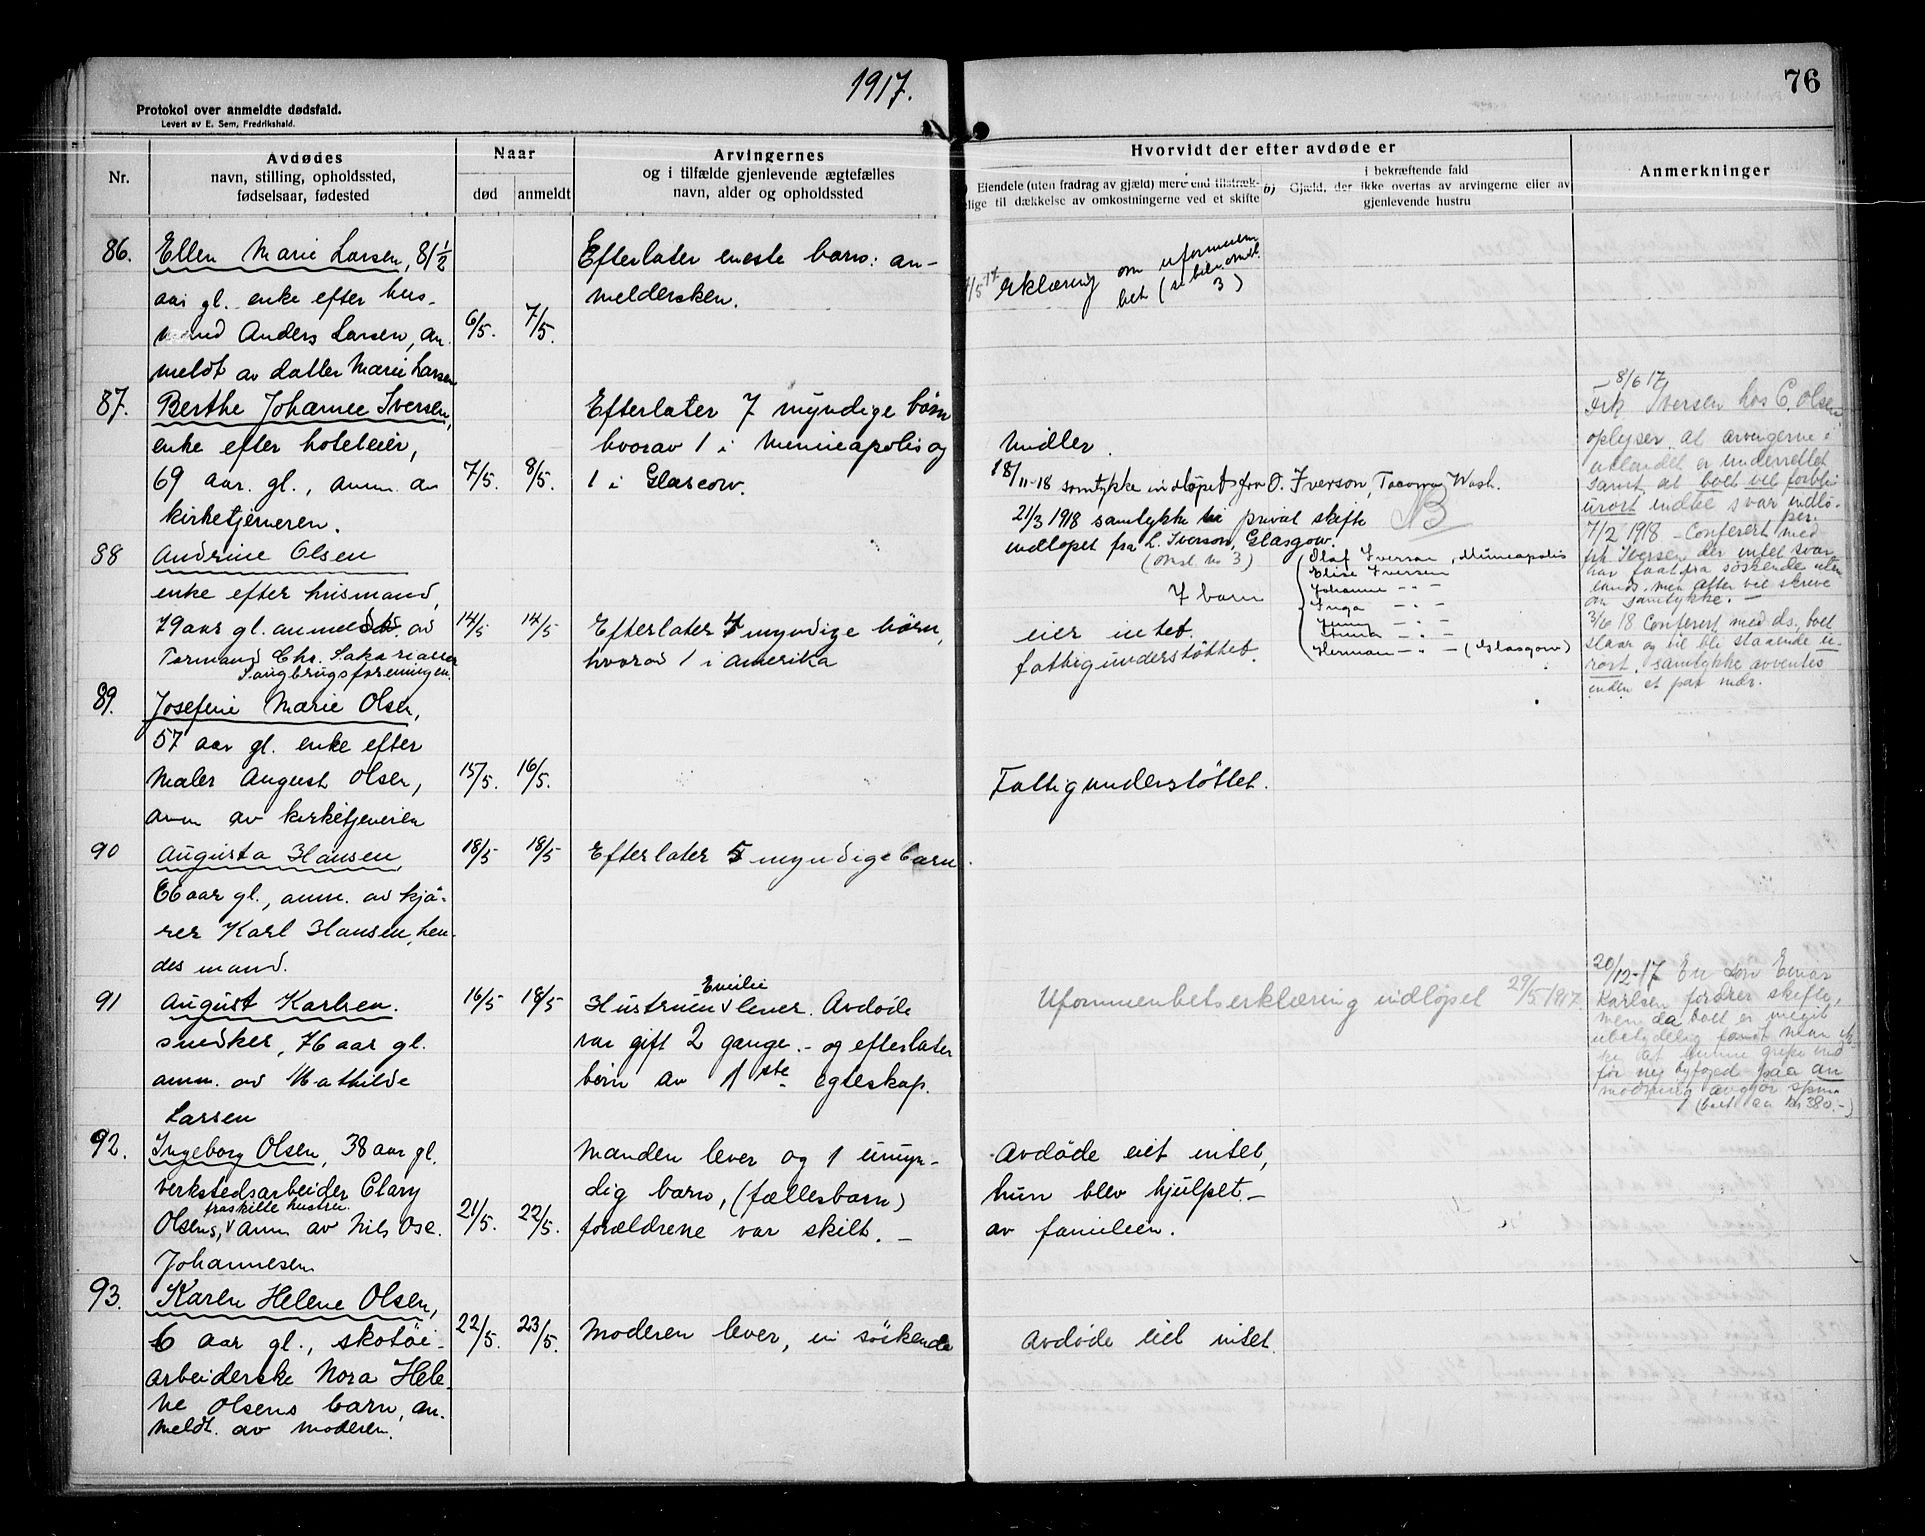 1917.
76
Protokol over anmeldte dødsfald.
Levert av E. Sem, Fredrikshald.
Nr.
Avdødes
navn, stilling, opholdssted,
fødselsaar, fødested
Naar
død
anmeldt
Arvingernes
og i tilfælde gjenlevende ægtefælles
navn, alder og opholdssted
Hvorvidt der efter avdøde er
Eiendele (uten fradrag av gjæld) mere end tilstræk-
lige til dækkelse av omkostningerne ved et skifte
i bekræftende fald
b) Gjæld, der ikke overtas av arvingerne eller av
gjenlevende hustru
Anmerkninger
86.
Ellen Marie Larsen, 81 1/2
aar gl. enke efter hus-
mand Anders Larsen, an-
meldt av datter Marie Larsen
6/5.
7/5.
Efterlater eneste barn: an-
meldersken.
Erklæring om uformuen
het
3)
87.
Berthe Johanne Iversen,
enke efter hoteleier,
69 aar. gl., anm. av
kirketjeneren.
7/5.
8/5.
Efterlater 7 myndige børn
hvorav 1 i Minneapolis og
1 i Glascow.
Midler.
18/11-18 samtykke indløpet fra O. Iverson, Tacoma Wash.
21/3 1918 samtykke til privat skifte
indløpet fra L. Iverson, Glasgow.
7 barn
Olaf Iverson, Minneapolis
Elise Iversen
Johanne - -
Inga - -
Herman - - (Glasgow)
8/6 17
Frk Iversen hos C. Olsen
oplyser at arvingerne i
utlandet er underrettet
samt at boet vil forbli
urørt indtil svar indlø-
per.
7/2 1918 - Conferert med
frk Iversen der intet svar
har faat fra søskende uten
lands, men atter vil skrive
om samtykke.
3/10 18 Conferert med ds. boet
staar og vil bli staaende u-
rørt, samtykke avventes
inden et par mdr.
88
Andrine Olsen
enke efter husmand,
79 aar gl. anmeldt av
Formand Chr. Sakariassen
Saugbrugsforeningen.
14/5
14/5
Efterlater 7 myndige børn,
hvorav 1 i Amerika
eier intet.
fattigunderstøttet.
89.
Josefine Marie Olsen,
57 aar gl. enke efter
Maler August Olsen,
anm av kirketjeneren
15/5.
16/5.
Fattigunderstøttet.
90
Augusta Hansen,
66 aar gl., anm. av kjø-
rer Karl Hansen, hen-
des mand.
18/5
18/5
Efterlater 5 myndige barn.
91
August Karlsen.
snedker, 76 aar gl.
anm. av Mathilde
Larsen
16/5
18/5
Emilie
Hustruen v lever. Avdøde
var gift 2 gange. - og efterlater
børn av 1ste egteskap.
Uformuenhetserklæring indløpet 29/5 1917.
20/12-17 En søn Einar
Karlsen fordrer skifte,
men da boet er meget
ubetydelig fandt man ik-
ke at kunne gripe ind
før ny byfoged paa an
modning avgjør spm.
(boet ca kr 380.-)
92.
Ingeborg Olsen, 38 aar gl.
verkstedsarbeider Clary
fraskilte hustru.
Olsens, v anm av Nils Ose.
Johannesen
21/5.
22/5.
Manden lever og 1 umyn-
dig barn, (fællesbarn)
forældrene var skilt. -
Avdøde eiet intet,
hun blev hjulpet. -
av familien.
93.
Karen Helene Olsen,
6 aar gl., skotøi-
arbeiderske Nora Hele-
ne Olsens barn, an-
meldt. av moderen.
22/5.
23/5.
Moderen lever, ei søskende
Avdøde eiet intet.